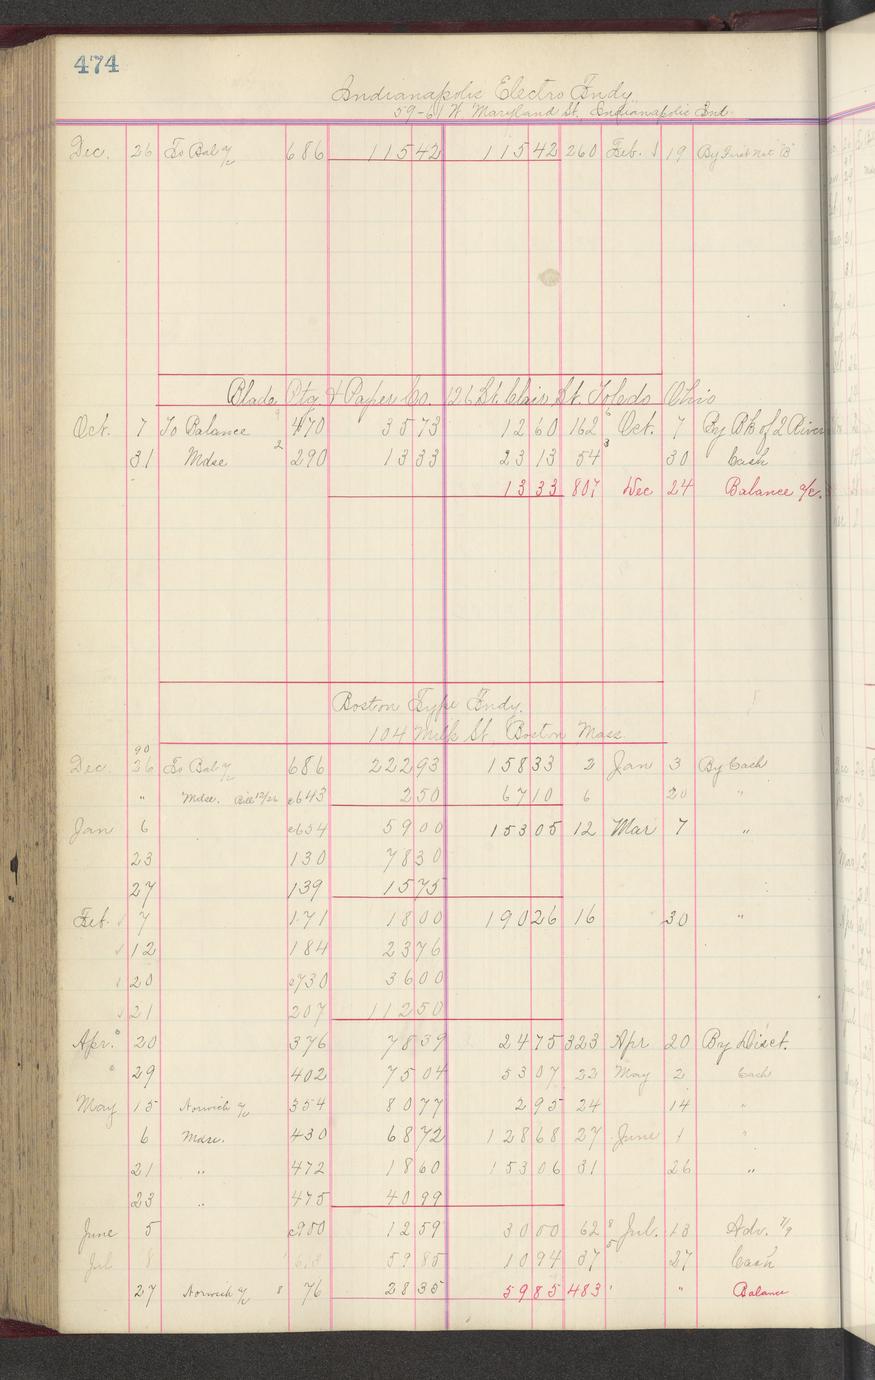 474
Indianapolis Electro Fndy
59-61 W. Maryland St. Indianapolis Ind.
Dec. 26 To Bal a/c 686 115 42 115 42 260 Feb. 19 By First Nat "B"
Blade Ptg. & Paper Co. 126 St. Clair St. Toledo Ohio
Oct. 7 To Balance 470 35 73 12 60 162 6 Oct. 7 By Bk of 2 Rivers
31 Mdse 2 290 13 33 23 13 54 3 30 Cash
13 33 807 Dec 24 Balance a/c.
Boston Type Fndy.
104 Milk St. Boston Mass.
90
Dec 26 To Bal a/c 686 222 93 158 33 2 Jan 3 By Cash
" Mdse. Bill 12/26 c643 2 50 67 10 6 20 "
Jan 6 c654 59 00 153 05 12 Mar 7 "
23 130 78 30
27 139 15 75
Feb. 7 171 18 00 190 26 16 30 "
12 184 23 76
20 c730 36 00
21 207 112 50
Apr. 20 376 78 39 24 75 323 Apr 20 By Disct.
" 29 402 75 04 53 07 22 May 2 Cash
May 15 Norwich a/c 354 80 77 2 95 24 14 "
6 Mdse. 430 68 72 128 68 27 June 1 "
21 " 472 18 60 153 06 31 26 "
23 " 475 40 99
June 5 c900 12 59 30 00 62 8 Jul. 13 Adv. 7/9
Jul 8 59 85 10 94 37 5 27 Cash
27 Norwich a/c 8 76 28 35 59 85 483 " " Balance